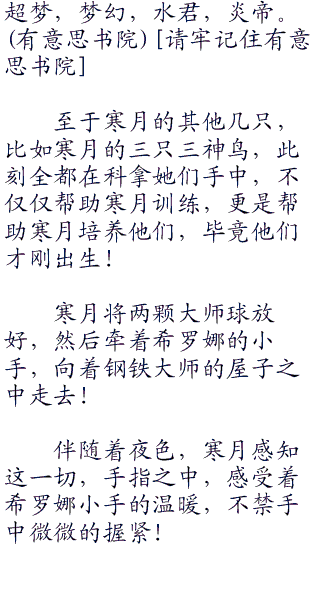 超梦，梦幻，水君，炎帝。
(有意思书院)[请牢记住有意
思书院]
至于寒月的其他几只，
比如寒月的三只三神鸟，此
刻全都在科拿她们手中，不
仅仅帮助寒月训练，更是帮
助寒月培养他们，毕竟他们
才刚出生！
寒月将两颗大师球放
好，然后牵着希罗娜的小
手，向着钢铁大师的屋子之
中走去！
伴随着夜色，寒月感知
这一切，手指之中，感受着
希罗娜小手的温暖，不禁手
中微微的握紧！